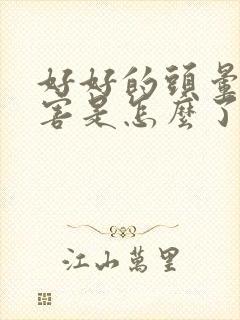 好好的頭暈
害是怎麼了
江山萬里